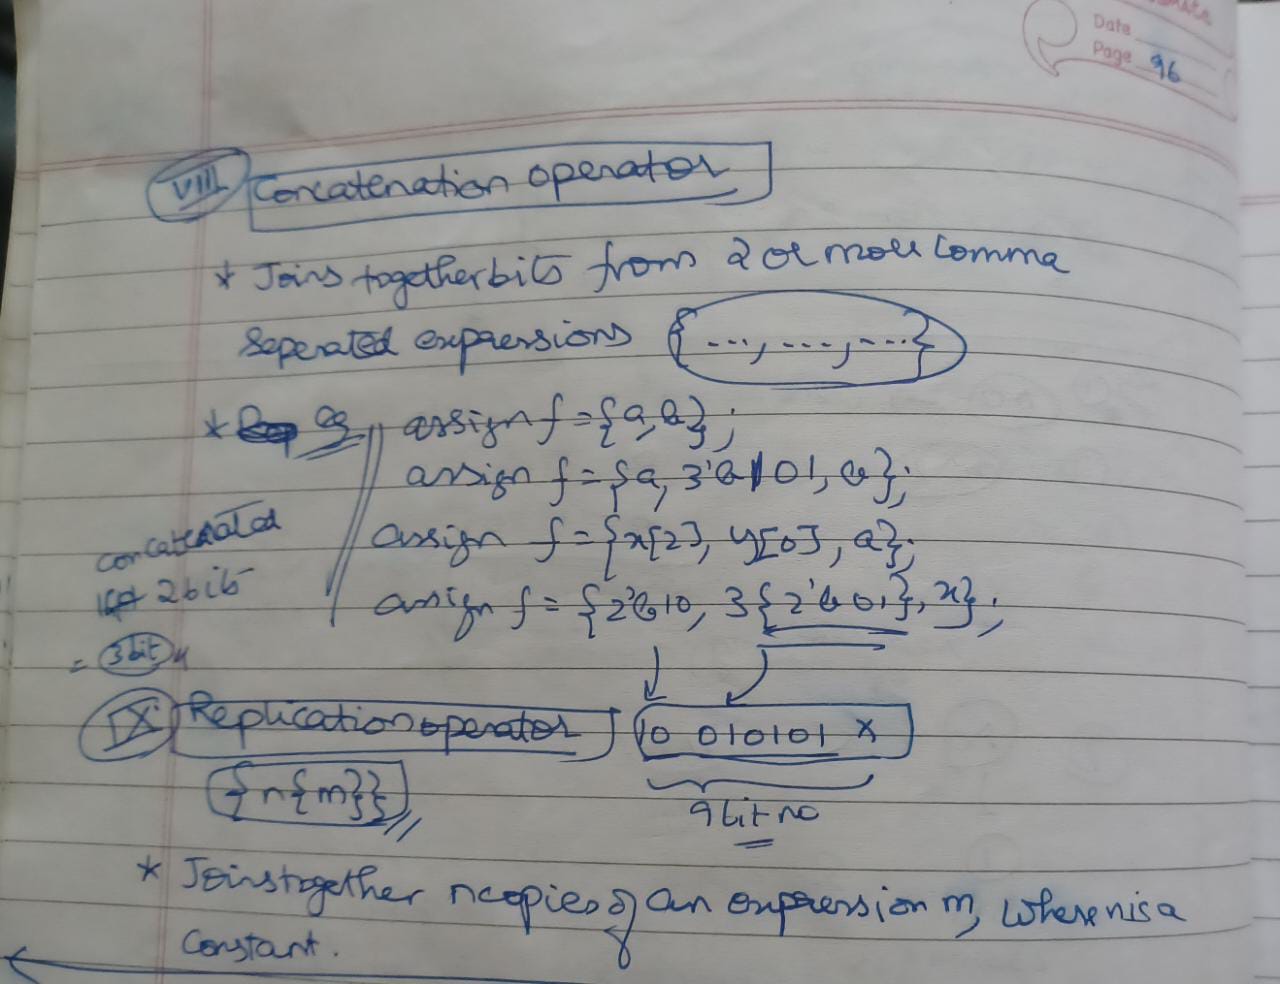 Date
Page 96
VIII Concatenation operator
* Joins together bits from 2 or more comma
seperated expressions {..., ..., ...}
* eg assign f = {a,b};
assign f = {a, 3'b101, b};
assign f = {x[2], y[0], a};
assign f = {2'b10, 3{2'b01}, x};
concatenated
2 bits
= 3 bit
IX Replication operator 10 010101 x
{n{m}}
9 bit no
* Joins together n copies of an expression m, where n is a
constant.